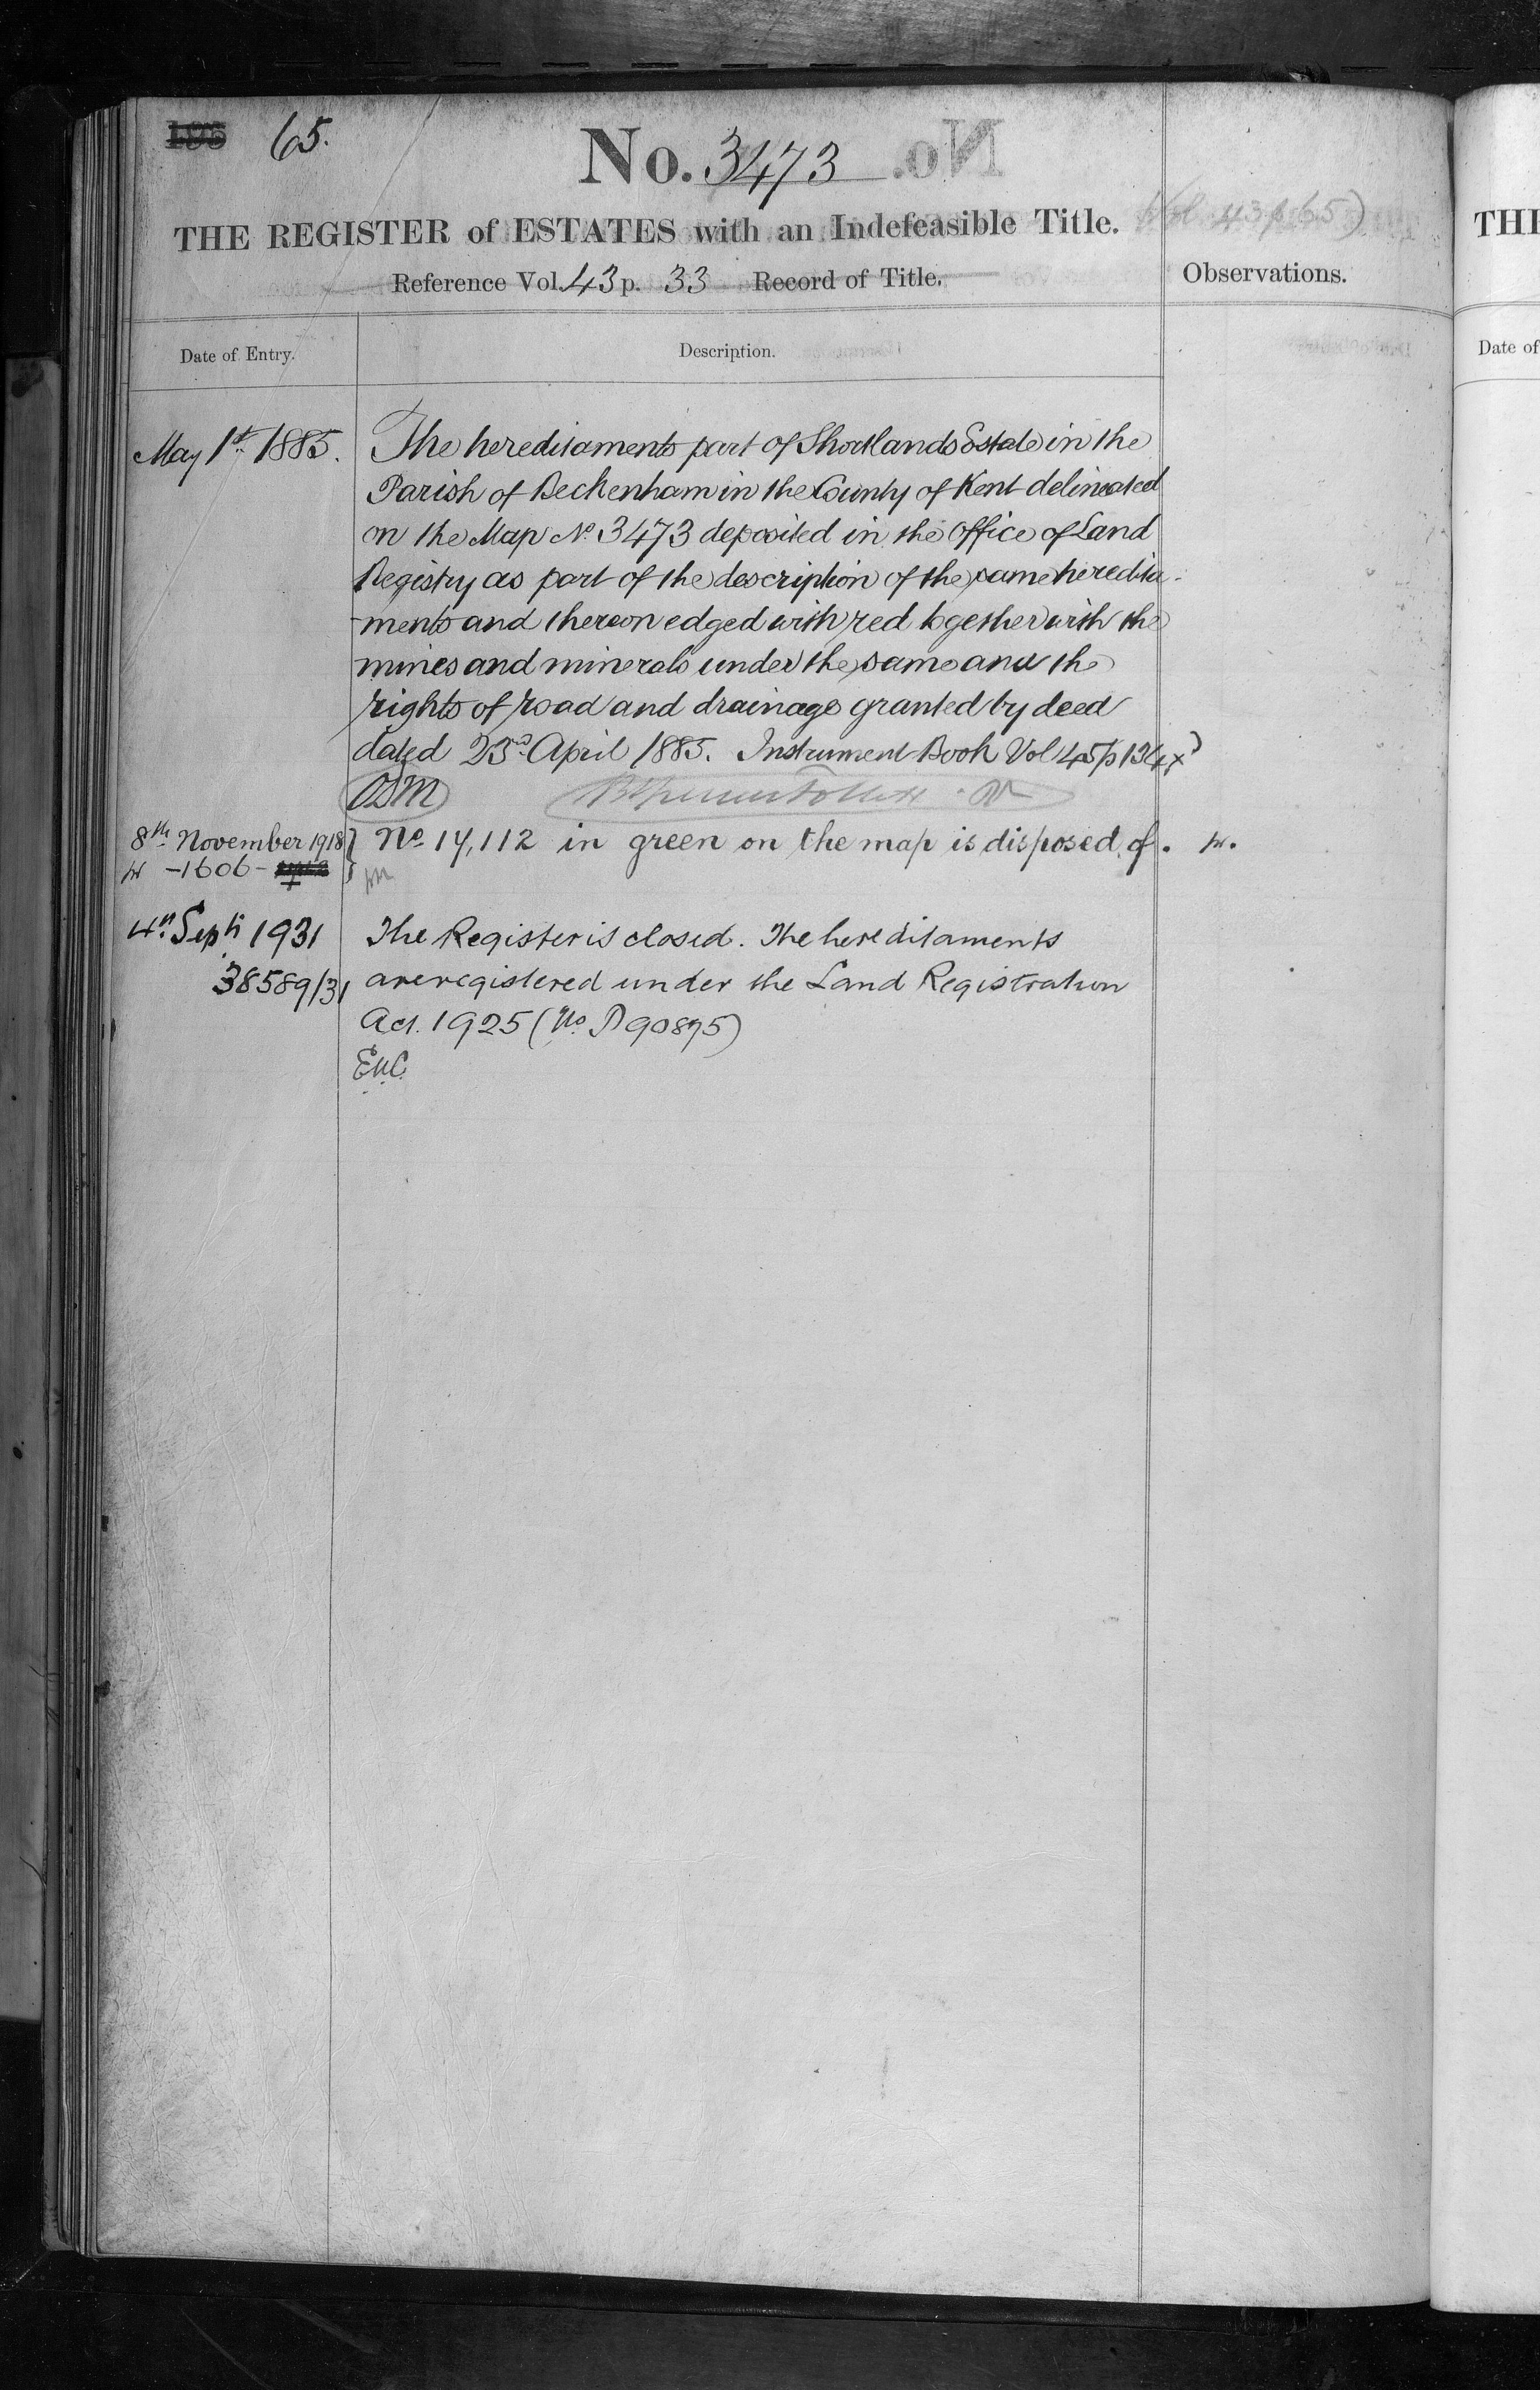 65.
No. 3473
THE REGISTER of ESTATES with an Indefeasible Title.
(Vol 43 p 65)
Reference Vol. 43 p. 33 Record of Title.
Observations.
Date of Entry.
Description.
May 1st 1885.
The hereditaments part of Shortlands Estate in the
Parish of Beckenham in the County of Kent delineated
on the Map No. 3473 deposited in the Office of Land
Registry as part of the description of the same heredita-
ments and thereon edged with red together with the
mines and minerals under the same and the
rights of road and drainage granted by deed
dated 23rd April 1885. Instrument Book Vol 45 p 134
8th November 1918
No. 14,112 in green on the map is disposed of.
-1606-
4th Sept. 1931
The Register is closed. The hereditaments
38589/31
are registered under the Land Registration
Act. 1925 (No. P90875)
THE
Date of